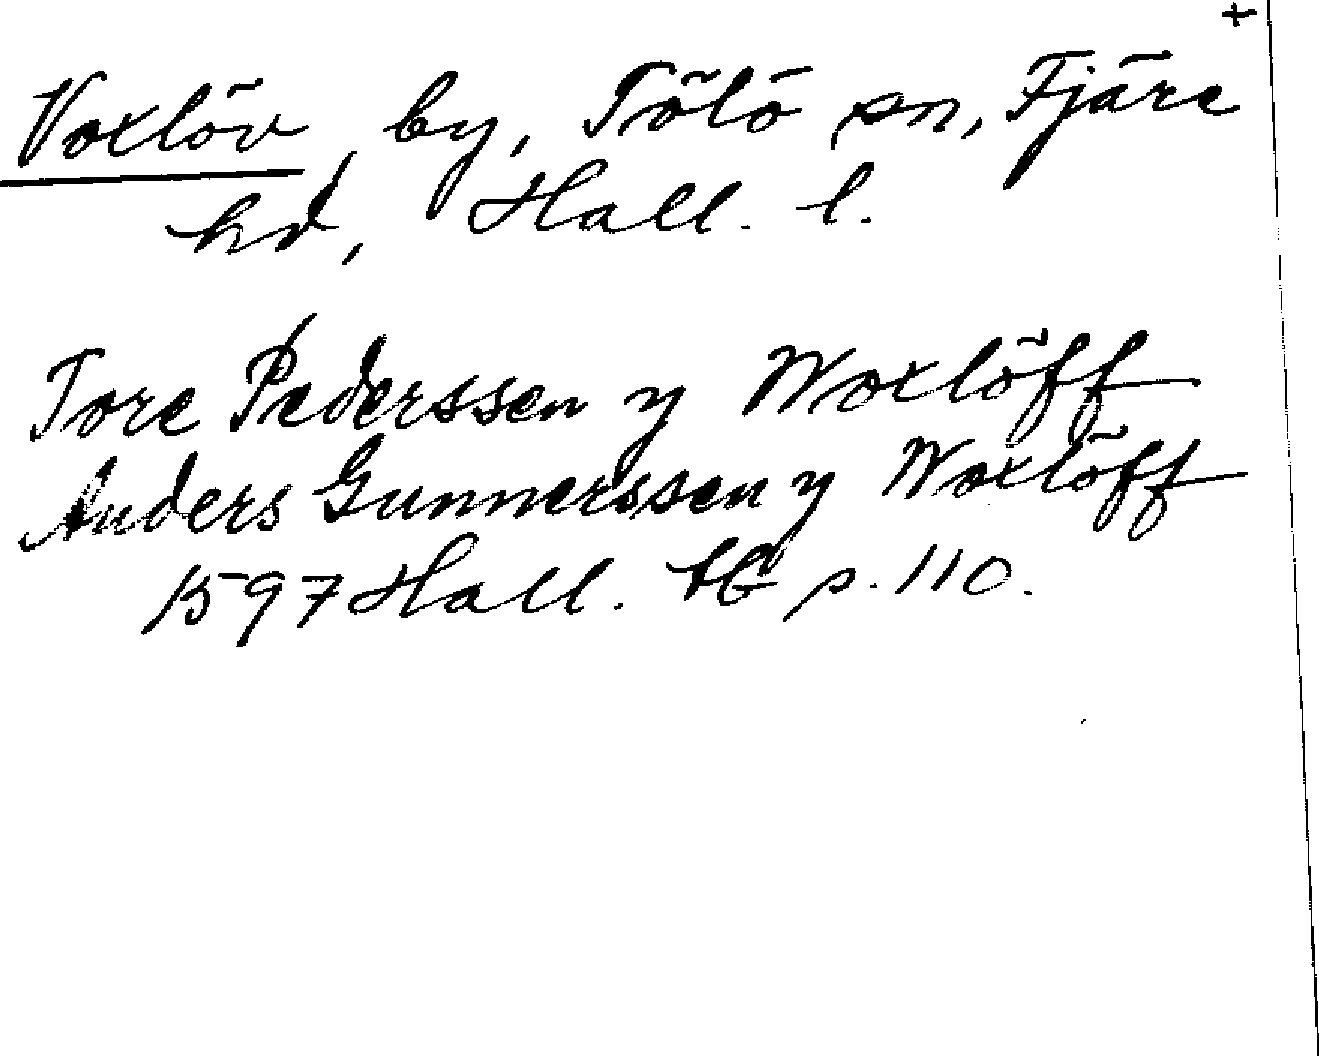 +
Voxlöv, by, Tölö sn, Fjäre
hd, Hall. l.
Tore Pederssen y Woxlöff
Anders Gunnerssen y Woxlöff
1597 Hall. lb p. 110.